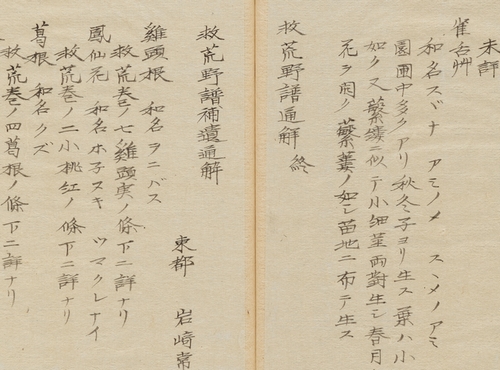 未詳
雀舌艸
和名スヾナ アミノメ スヽメノアミ
園圃中多クアリ秋冬子ヨリ生ス葉ハ小
如クヌ蘩縷ニ似テ小細茎両對生シ春月
花ヲ開ク蘩蔞ノ如シ苗地ニ布テ生ス
救荒野譜通解 終
救荒野譜補遺通解
東都 岩崎常
雞頭根 和名ヲニバス
救荒巻ノ七雞頭実ノ條下ニ詳ナリ
鳳仙花 和名ホネヌキ ツマクレナイ
救荒巻ノ二小桃紅ノ條下ニ詳ナリ
葛根 和名クズ
救荒巻ノ四葛根ノ條下ニ詳ナリ